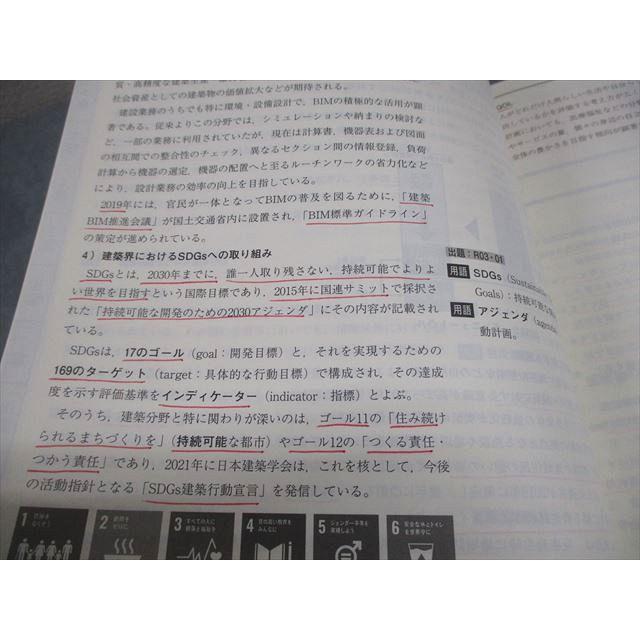 質・高精度な建築生産
社会資産としての建築物の価値拡大などが期待される。
建設業務のうちでも特に環境・設備設計で，BIMの積極的な活用が顕
著である。従来よりこの分野では，シミュレーションや納まりの検討な
ど，一部の業務に利用されていたが，現在は計算書，機器表および図面
の相互間での整合性のチェック，異なるセクション間の情報登録，負荷
計算から機器の選定，機器の配置へと至るルーチンワークの省力化など
により，設計業務の効率の向上を目指している。
2019年には，官民が一体となってBIMの普及を図るために，「建築
BIM推進会議」が国土交通省内に設置され，「BIM標準ガイドライン」
の策定が進められている。
4）建築界におけるSDGsへの取り組み
SDGsとは，2030年までに，誰一人取り残さない，持続可能でよりよ
い世界を目指すという国際目標であり，2015年に国連サミットで採択さ
れた「持続可能な開発のための2030アジェンダ」にその内容が記載され
ている。
SDGsは，17のゴール（goal：開発目標）と，それを実現するための
169のターゲット（target：具体的な行動目標）で構成され，その達成
度を示す評価基準をインディケーター（indicator：指標）とよぶ。
そのうち，建築分野と特に関わりが深いのは，ゴール11の「住み続け
られるまちづくりを」（持続可能な都市）やゴール12の「つくる責任・
つかう責任」であり，2021年に日本建築学会は，これを核として，今後
の活動指針となる「SDGs建築行動宣言」を発信している。
1 貧困を
なくそう
2 飢餓を
ゼロに
3 すべての人に
健康と福祉を
4 質の高い教育を
みんなに
5 ジェンダー平等を
実現しよう
6 安全な水とトイレ
を世界中に
QOL
出題：R03・01
用語 SDGs（Sustaina
Goals）：持続可能な
用語 アジェンダ（agenda
動計画。